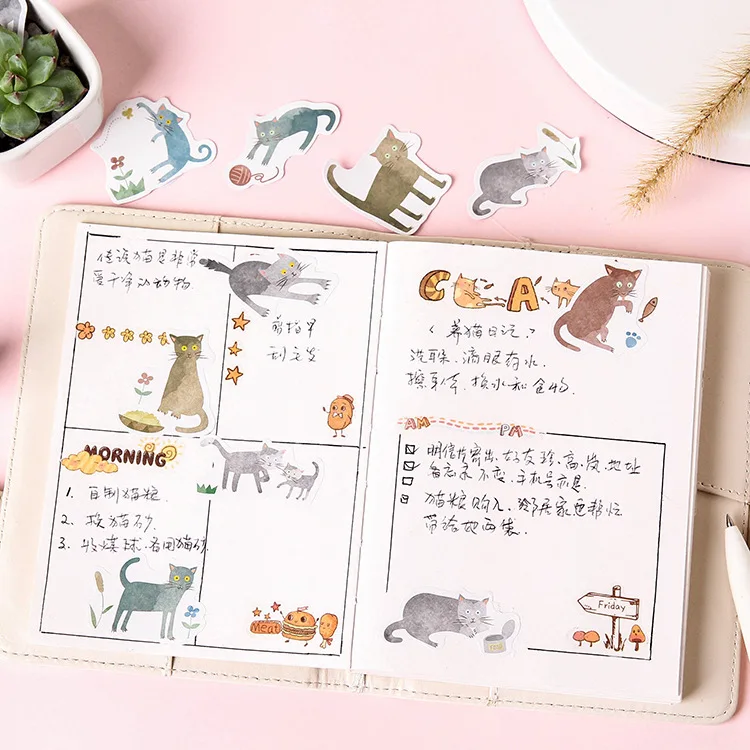 传说猫是非常
爱干净动物
剪指甲
刮毛发
MORNING
1. 自制猫粮
2. 换猫砂
3.
Meat
CA
《养猫日记》
洗耳朵、滴眼药水
擦身体、换水和食物
AM PM
明信片寄出、好友珍、高、岚、地址
备忘录不变、手机号亦是
猫粮购入、邻居家也帮忙
带给她两袋
Friday